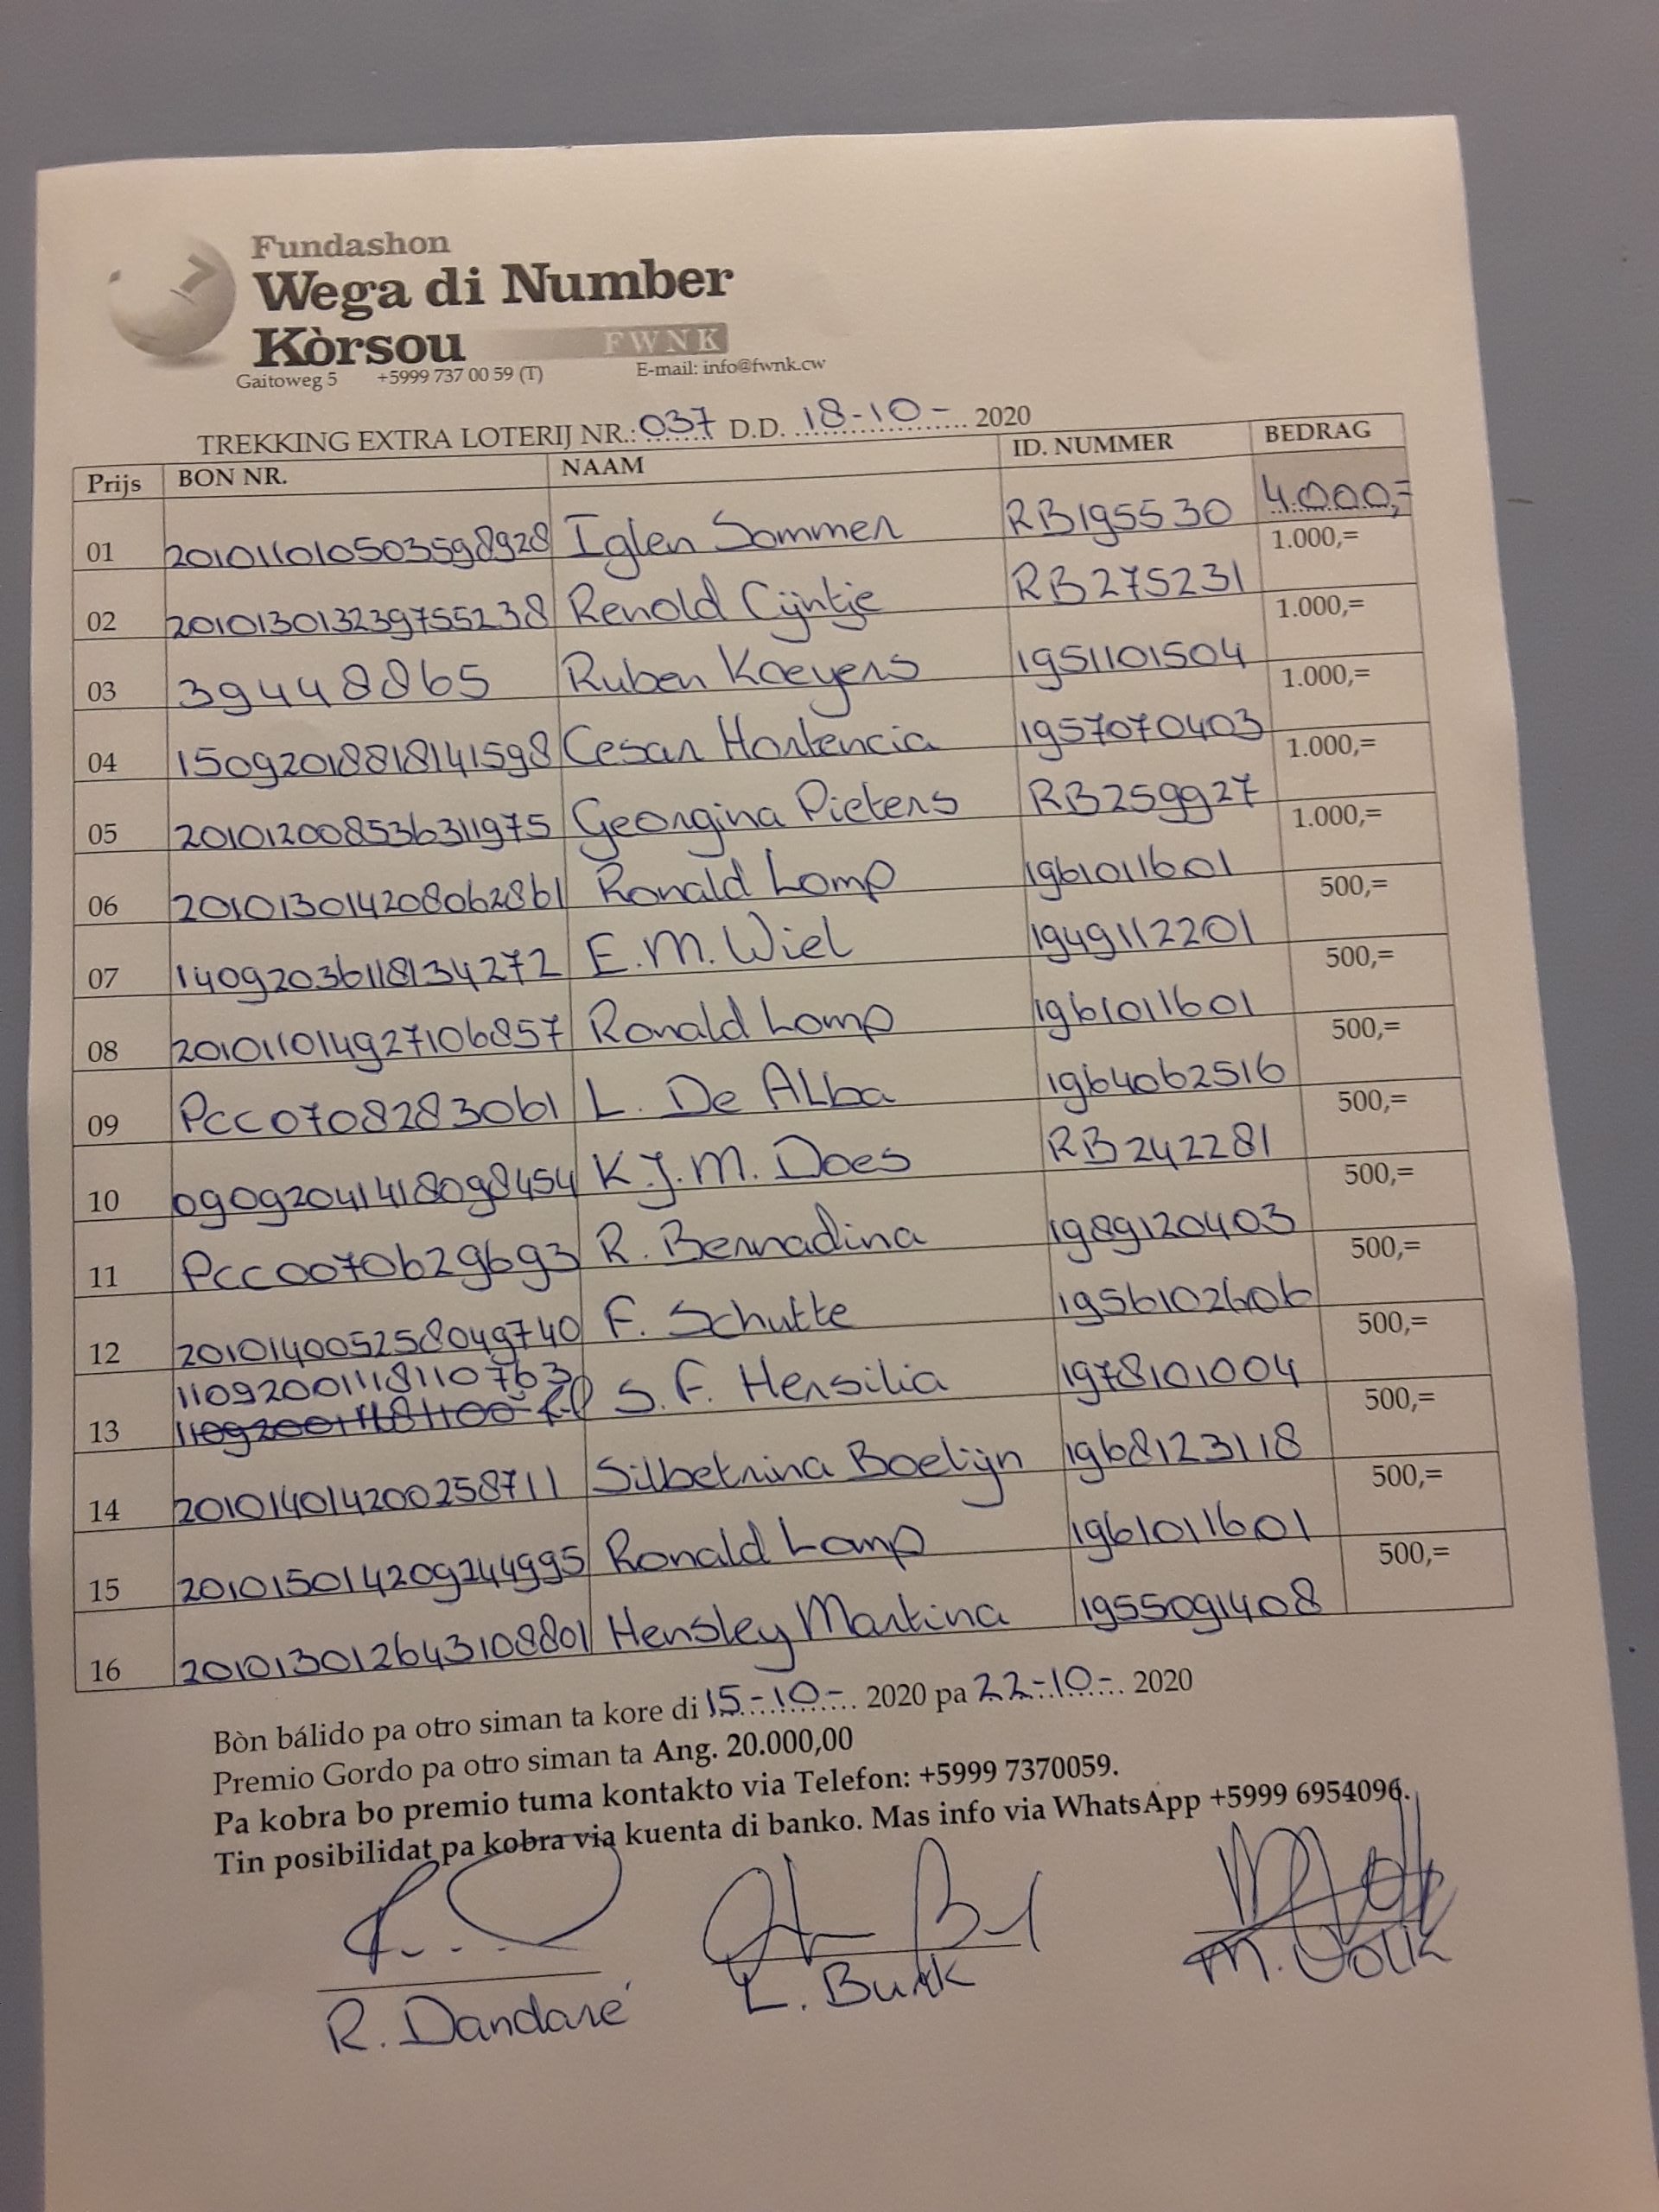 Fundashon
Wega di Number
Kòrsou FWNK
Gaitoweg 5 +5999 737 00 59 (T) E-mail: info@fwnk.cw
TREKKING EXTRA LOTERIJ NR.: 037 D.D. 18-10- 2020
Prijs BON NR. NAAM ID. NUMMER BEDRAG
01 201011010503598928 Iglen Sommer RB195530 4.000,=
02 2010130132397552 38 Renold Cijntje RB275231 1.000,=
03 39448865 Ruben Koeyers 1951101504 1.000,=
04 15092018818141598 Cesar Hortencia 1957070403 1.000,=
05 2010120085363 11975 Georgina Pieters RB259927 1.000,=
06 2010130142080 62861 Ronald Lomp 1961011601 1.000,=
07 140920361181 34272 E.M. Wiel 1949112201 500,=
08 2010110149271 06857 Ronald Lomp 1961011601 500,=
09 PCC0708283061 L. De ALba 1964062516 500,=
10 090920414180 98454 K.J.M. Does RB242281 500,=
11 PCC0070629693 R. Bernadina 1989120403 500,=
12 2010140052580 49740 F. Schutte 1956102606 500,=
110920011181 10763
13 S.F. Hersilia 1978101004 500,=
14 2010140142002 58711 Silbetrina Boelijn 1968123118 500,=
15 2010150142092 44995 Ronald Lomp 1961011601 500,=
16 2010130126431 08801 Hensley Martina 1955091408 500,=
Bòn bálido pa otro siman ta kore di 15-10- 2020 pa 22-10- 2020
Premio Gordo pa otro siman ta Ang. 20.000,00
Pa kobra bo premio tuma kontakto via Telefon: +5999 7370059.
Tin posibilidat pa kobra via kuenta di banko. Mas info via WhatsApp +5999 6954096.
R. Dandaré L. Burk M. Volk